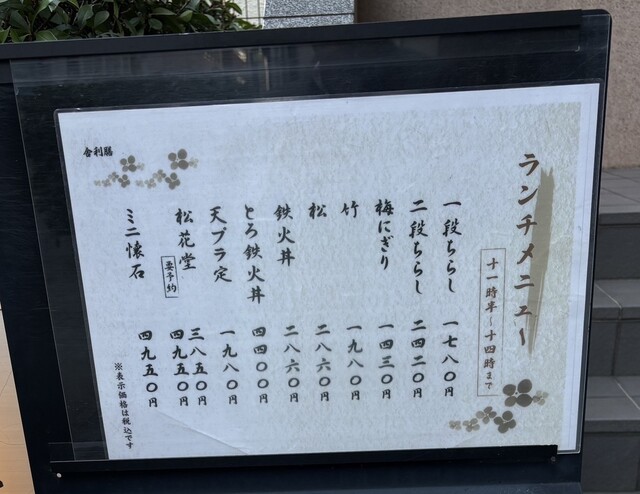 ランチメニュー
十一時半〜十四時まで
一段ちらし 一七八〇円
二段ちらし 二四二〇円
梅にぎり 一四三〇円
竹 一九八〇円
松 二八六〇円
鉄火丼 二八六〇円
とろ鉄火丼 四四〇〇円
天プラ定 一九八〇円
松花堂 要予約 三八五〇円
四九五〇円
ミニ懐石 四九五〇円
※表示価格は税込です
舎利膳